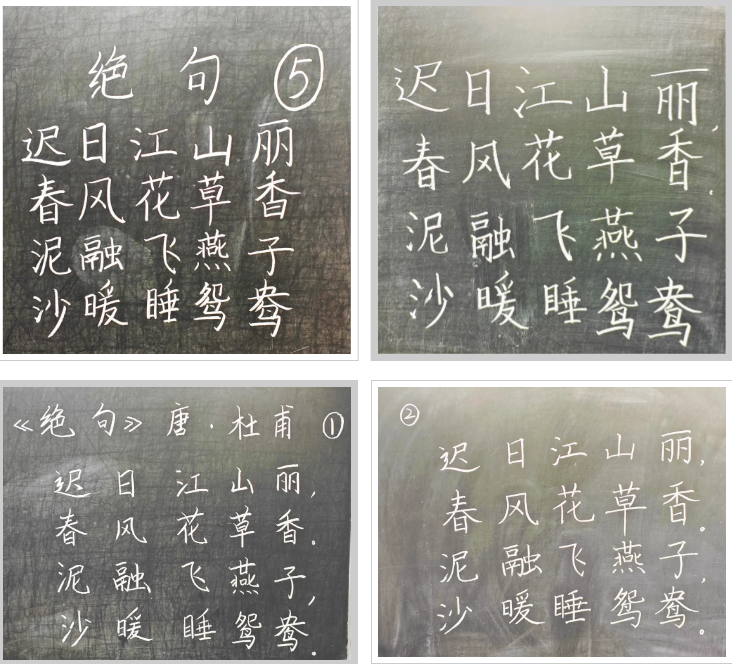 绝句 ⑤
迟日江山丽
春风花草香
泥融飞燕子
沙暖睡鸳鸯
迟日江山丽,
春风花草香.
泥融飞燕子
沙暖睡鸳鸯
《绝句》唐·杜甫 ①
迟日江山丽,
春风花草香.
泥融飞燕子,
沙暖睡鸳鸯.
②
迟日江山丽,
春风花草香。
泥融飞燕子,
沙暖睡鸳鸯。